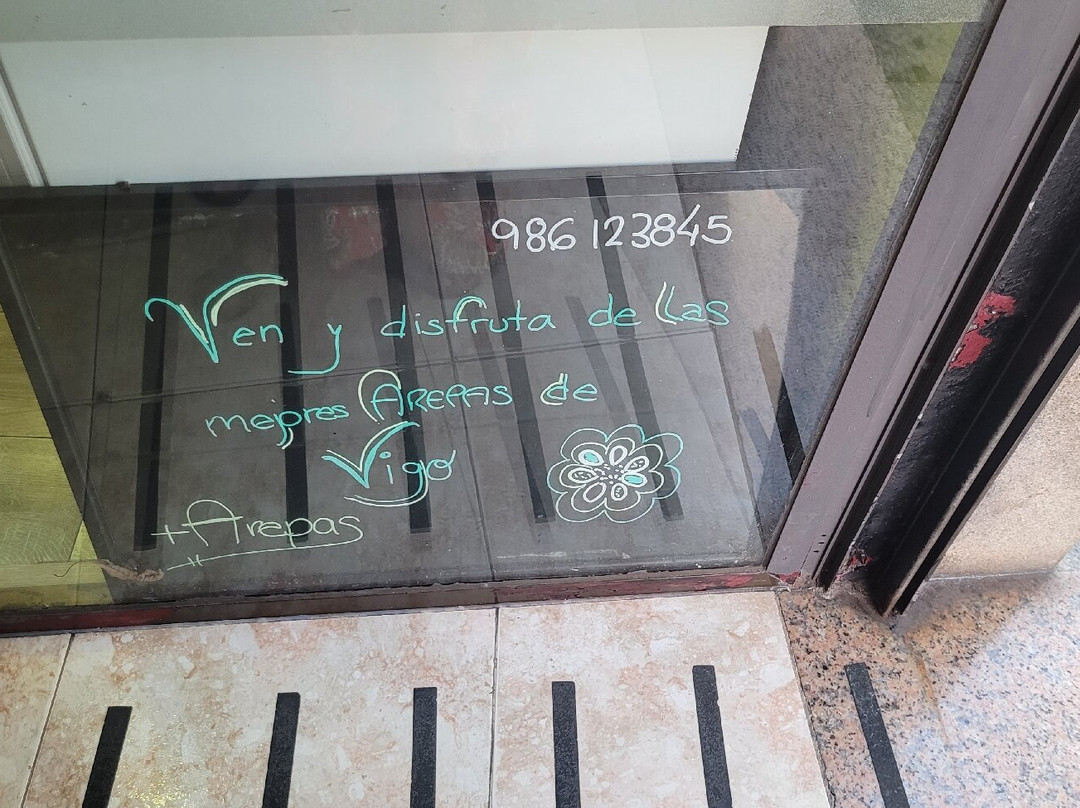 986 123845
Ven y disfruta de las
mejores AREPAS de
Vigo
+Arepas